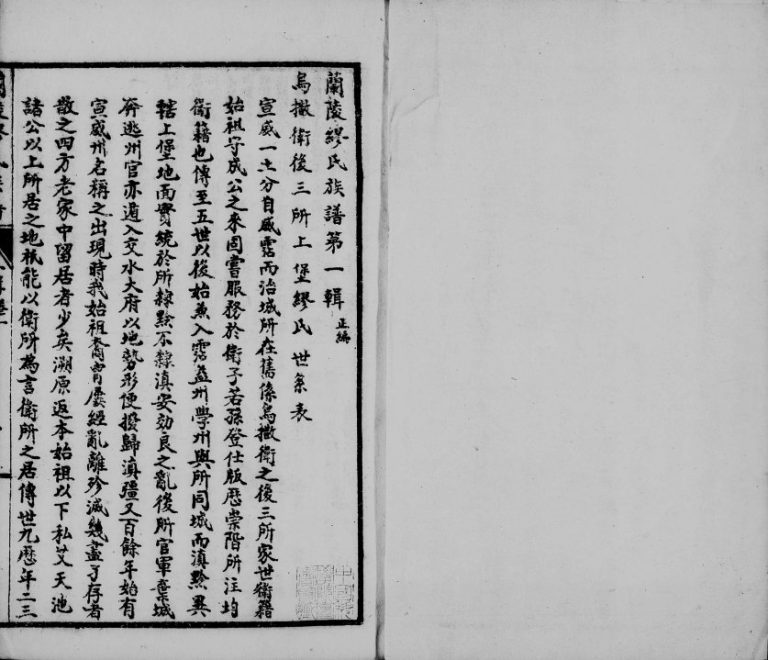 蘭陵繆氏族譜第一輯 正編
烏撒衛後三所上堡繆氏世系表
宣威一土分自威霑而治城所在舊係烏撒衛之後三所家世衛籍
始祖守成公之來固嘗服務於衛子若孫登仕版歷崇階所注均
衛籍也傳至五世以後始兼入霑益州學州與所同城而滇黔異
轄上堡地面實統於所隸黔不隸滇安効良之亂後所官軍棄城
奔逃州官亦遁入交水大府以地勢形便撥歸滇疆又百餘年始有
宣威州名稱之出現時我始祖裔胄屢經亂離殄滅幾盡孑存者
散之四方老家中留居者少矣溯原返本始祖以下私艾天池
諸公以上所居之地祇能以衛所為言衛所之居傳世九歷年二三